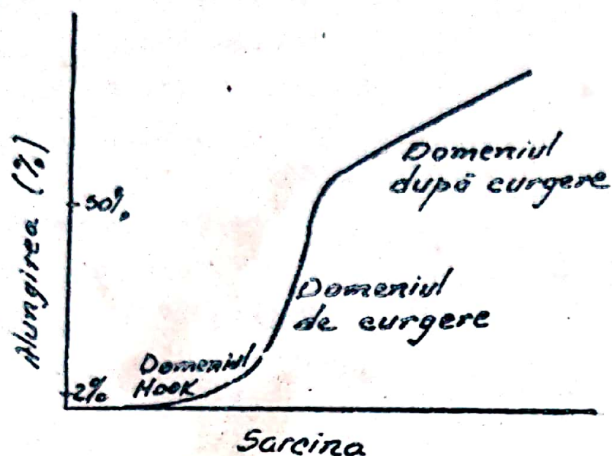 Alungirea (%)
50%
2%
Domeniul
după curgere
Domeniul
de curgere
Domeniul
HOOK
Sarcina